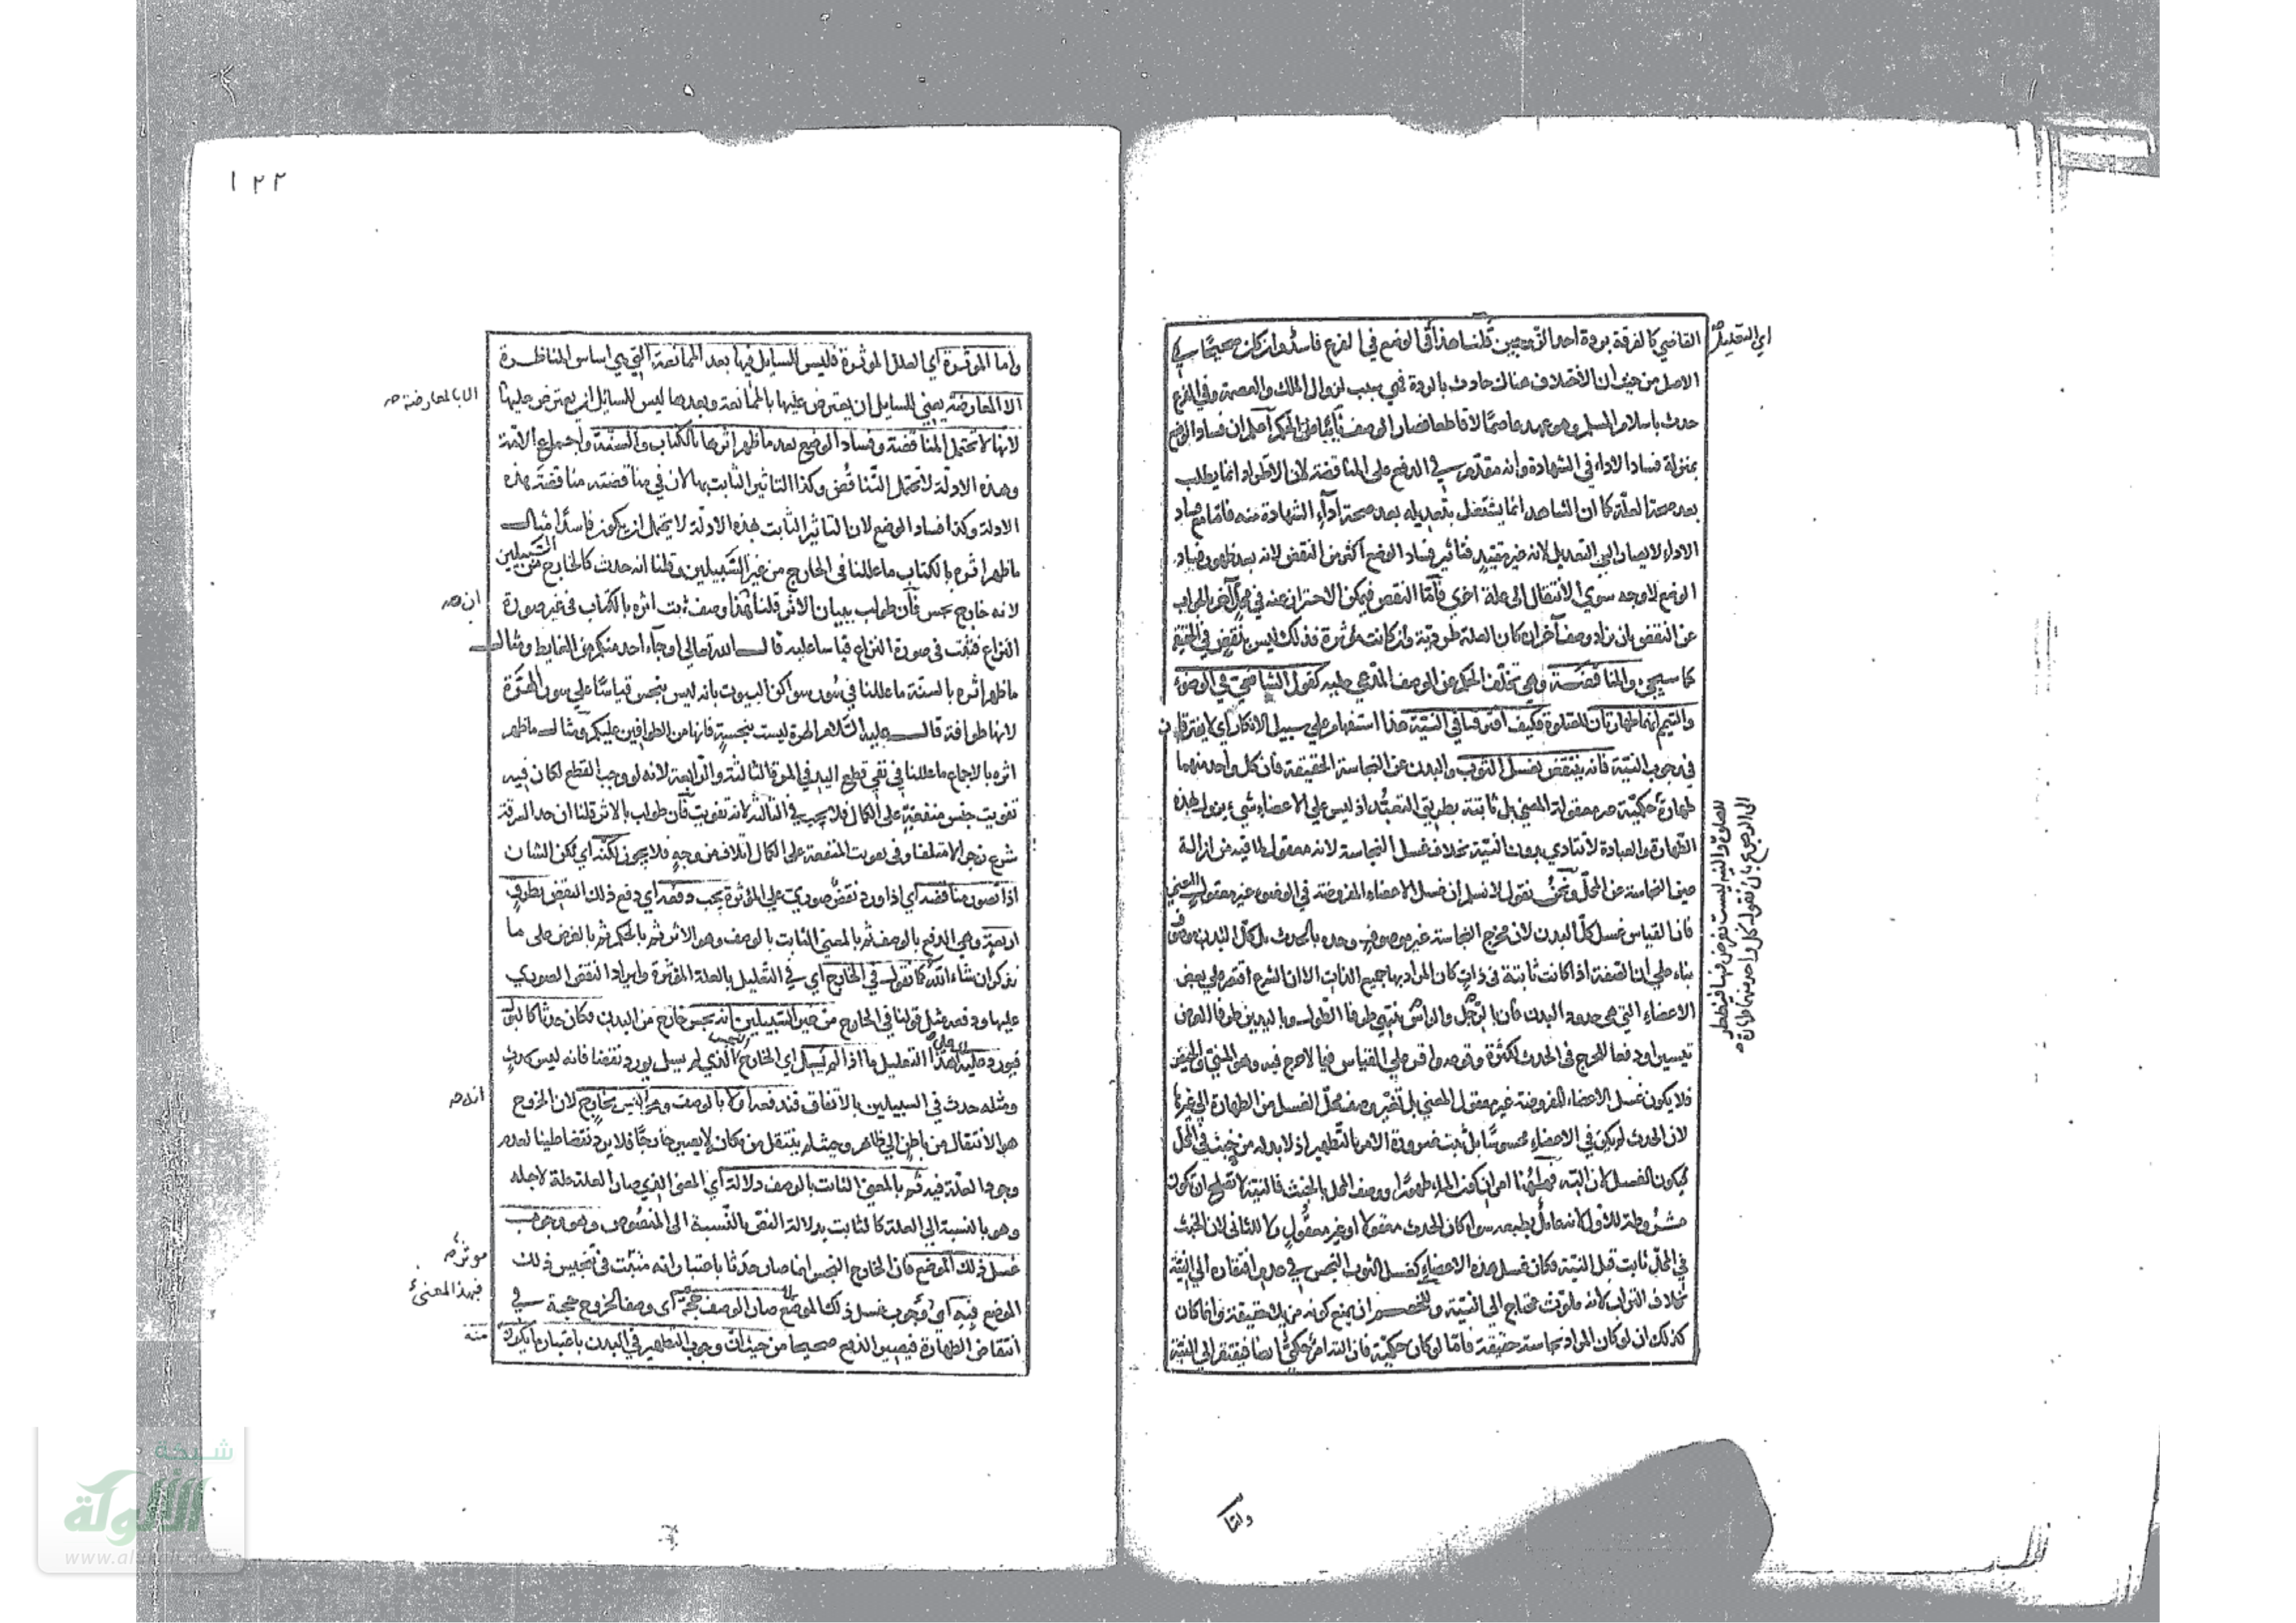 القاضي كالفرقة بردة احد الزوجين قلنا هذا في الوضع في الفرع فاسد وان كان صحيحا في
الاصل من حيث ان الاختلاف هناك حادث بالردة فهي سبب لزوال الملك والعصمة وفي الفرع
حدث باسلام المسلم وهو عهد عاصما لا قاطعا فصار الوصف نابيا عن الحكم اعلم ان فساد الوضع
بمنزلة فساد الاداء في الشهادة وانه مقدم في الدفع على المناقضة لان الاطراد انما يطلب
بعد صحة العلة كما ان الشاهد انما يشتغل بتعديله بعد صحة اداء الشهادة منه فاما مع فساد
الاداء لا يصار الى التعديل لانه غير مفيد فتاثير فساد الوضع اكثر من النقض لانه بعد ظهور فساد
الوضع لا وجه سوى الانتقال الى علة اخرى فاما النقض فيمكن الاحتراز عنه في الجواب
عن النقض بان زاد وصفا آخر ان كان العلة طردية وان كانت مؤثرة فذلك ليس بنقض في الحقيقة
كما سيجئ والمناقضة وهي تخلف الحكم عن الوصف المدعى عليه كقول الشافعي في الوضوء
والتيمم انهما طهارتان للصلوة فكيف افترقتا في النية هذا استفهام على سبيل الانكار اي لا يفترقان
في وجوب النية فانه ينتقض بغسل الثوب والبدن عن النجاسة الحقيقة فان كل واحد منهما
طهارة حكمية غير معقولة المعنى بل ثابتة بطريق التعبد اذ ليس على الاعضاء شيء يزول بهذه
الطهارة والعبادة لا تتادى بدون النية بخلاف غسل النجاسة لانه معقول لما فيه من ازالة
عين النجاسة عن المحل ونحن نقول لا نسلم ان غسل الاعضاء المفروضة في الوضوء غير معقول المعنى
فان القياس غسل كل البدن لان مخرج النجاسة غير موصوف وحده بالحدث بل كل البدن موصوف
بناء على ان الصفة اذا كانت ثابتة في ذات كان المراد بها جميع الذات الا ان الشرع اقتصر على بعض
الاعضاء التي هي حدود البدن فان بالرجل والراس ينتهي طرفا الطول وباليدين طرفا العرض
تيسيرا ودفعا للحرج في الحدث لكثرة وقوعه واقر على القياس فيما لا حرج فيه وهو المني والحيض
فلا يكون غسل الاعضاء المفروضة غير معقول المعنى بل تغير وصف محل الغسل من الطهارة الى غيرها
لان الحدث لم يكن في الاعضاء محسوسا بل ثبت ضرورة الامر بالتطهير اذ لا بد له من خبث في المحل
ليكون الغسل لازالته فههنا امران كون الماء طهورا ووصف المحل بالخبث فالنية لا تصلح ان تكون
مشروطة للاول لانه عامل بطبعه سواء كان الحدث معقولا او غير معقول ولا للثاني لان الخبث
في المحل ثابت قبل النية فكان غسل هذه الاعضاء كغسل الثوب النجس في عدم افتقاره الى النية
بخلاف التراب لانه ملوث محتاج الى النية وللخصم ان يمنع كونه مزيلا حقيقة وانما كان
كذلك ان لو كان المراد نجاسة حقيقة فاما لو كان حكمية فازالته امر حكمي ايضا فيفتقر الى النية
اي التعليل
الى الرجوع بان نقول كل واحد منهما طهارة
للصلوة والنية ليست بفرض فيها فيضطر
واما
١٢٢
واما المؤثرة اي العلل المؤثرة فليس للسايل فيها بعد الممانعة التي هي اساس المناظرة
الا المعارضة يعني للسايل ان يعترض عليها بالممانعة وبعدها ليس للسايل ان يعترض عليها
لانها لا تحتمل المناقضة وفساد الوضع بعد ما ظهر اثرها بالكتاب والسنة واجماع الامة
وهذه الادلة لا تحتمل التناقض وكذا التاثير الثابت بها لان في مناقضته مناقضة هذه
الادلة وكذا فساد الوضع لان التاثير الثابت بهذه الادلة لا يحتمل ان يكون فاسدا مثال
ما ظهر اثره بالكتاب ما عللنا في الخارج من غير السبيلين وقلنا انه حدث كالخارج من السبيلين
لانه خارج نجس فان طولب ببيان الاثر قلنا هذا وصف ثبت اثره بالكتاب في غير صورة
النزاع فثبت في صورة النزاع قياسا عليه قال الله تعالى او جاء احد منكم من الغايط ومثال
ما ظهر اثره بالسنة ما عللنا في سؤر سواكن البيوت بانه ليس بنجس قياسا على سؤر الهرة
لانها طوافة قال عليه السلام الهرة ليست بنجسة فانها من الطوافين عليكم ومثال ما ظهر
اثره بالاجماع ما عللنا في نفي قطع اليد في المرة الثالثة والرابعة لانه لو وجب القطع لكان فيه
تفويت جنس منفعة على الكمال فلا يجب في الثالثة لانه تفويت فان طولب بالاثر قلنا ان حد السرقة
شرع زجرا لا متلفا وفي تفويت المنفعة على الكمال اتلاف من وجه فلا يجوز لكنه اي لكن الشان
اذا تصور مناقضة اي اذا ورد نقض صوري على المؤثرة يجب دفعه اي دفع ذلك النقض بطرق
اربعة وهي الدفع بالوصف ثم بالمعنى الثابت بالوصف وهو الاثر ثم بالحكم ثم بالغرض على ما
نذكر ان شاء الله كما نقول في الخارج اي في التعليل بالعلة المؤثرة وايراد النقض الصوري
عليها ودفعه مثل قولنا في الخارج من غير السبيلين انه نجس خارج من البدن فكان حدثا كالبول
فيورد عليه هذا التعليل ما اذا لم يسل اي الخارج النجس الذي لم يسل يورد نقضا فانه ليس بحدث
ومثله حدث في السبيلين بالاتفاق فندفعه اولا بالوصف وهو انه ليس بخارج لان الخروج
هو الانتقال من باطن الى ظاهر وحيث لم ينتقل من مكان لا يصير خارجا فلا يرد نقضا علينا لعدم
وجود العلة فيه ثم بالمعنى الثابت بالوصف دلالة اي المعنى الذي صار العلة علة لاجله
وهو بالنسبة الى العلة كالثابت بدلالة النص بالنسبة الى المنصوص وهو وجوب
غسل ذلك الموضع فان الخارج النجس انما صار حدثا باعتبار انه مثبت في تنجيس ذلك
الموضع فيه اي لوجوب غسل ذلك الموضع صار الوصف حجة اي وصف الخروج حجة في
انتقاض الطهارة فيصير الدفع صحيحا من حيث ان وجوب التطهير في البدن باعتبار ما يكون
الا بالمعارضة صح
ان صح
انه صح
موثر صح
فبهذا المعنى
منه
شبكة
الألوكة